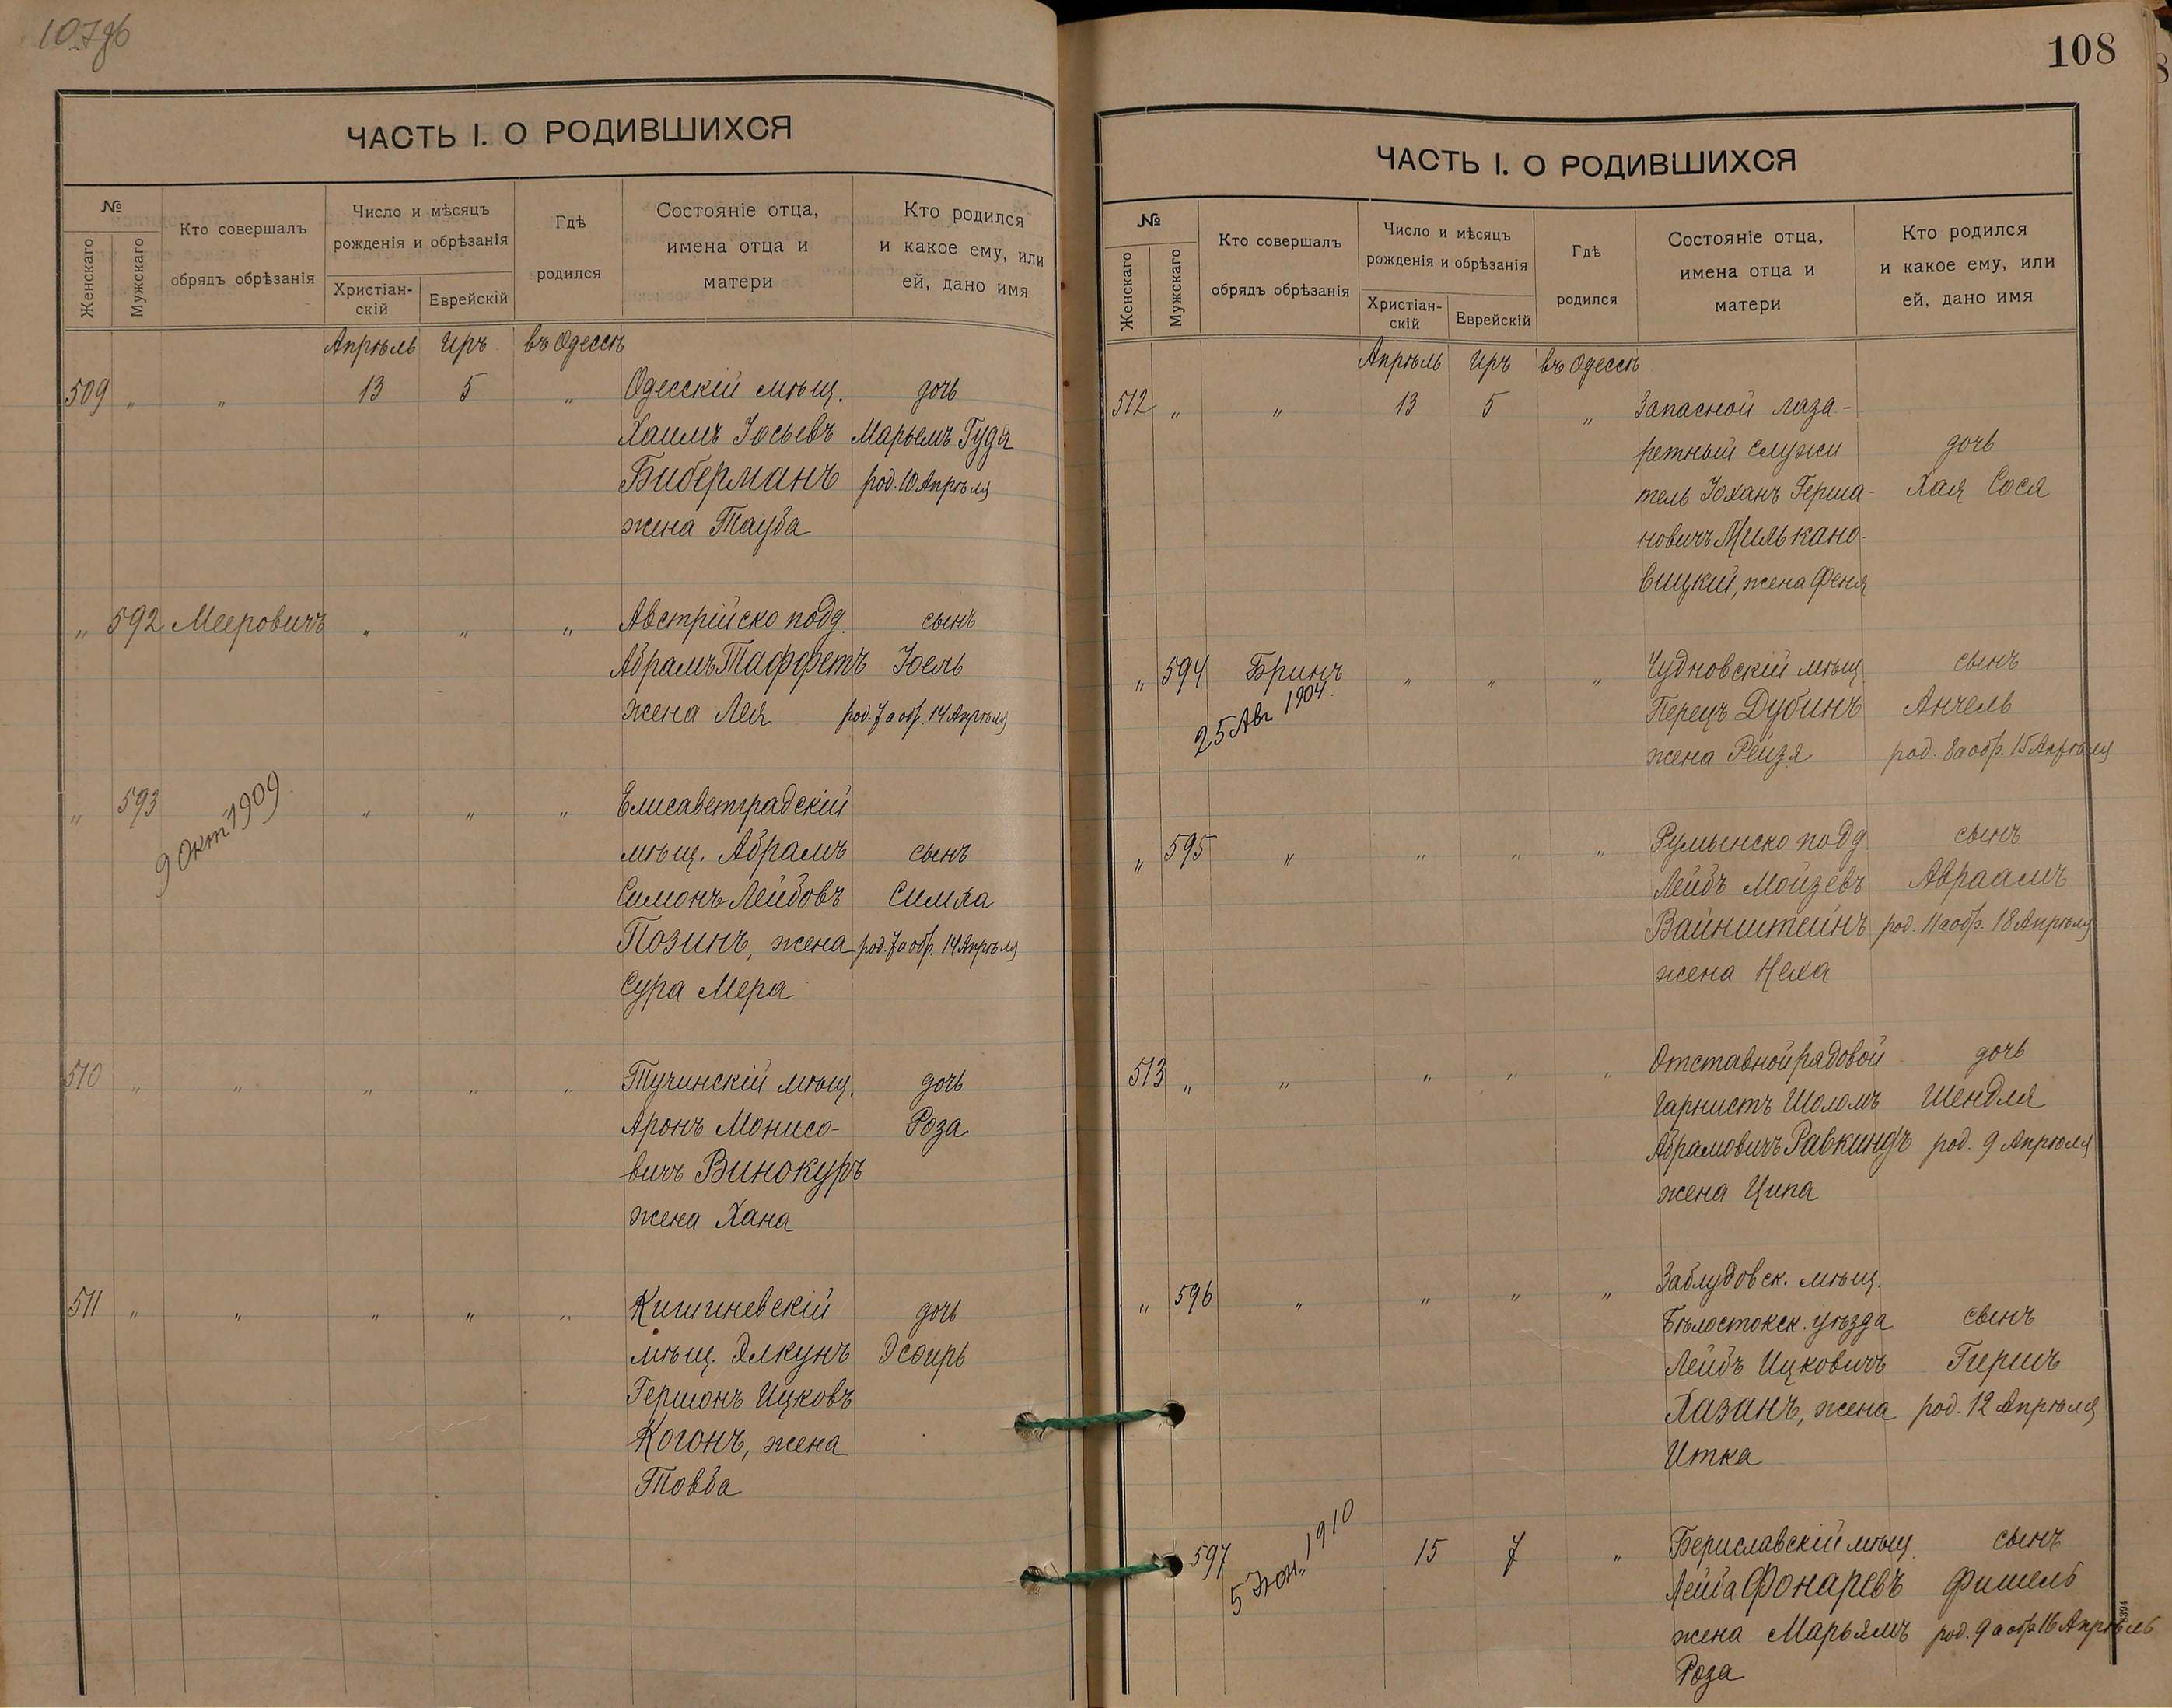 107об
ЧАСТЬ I. О РОДИВШИХСЯ
№
Женскаго
Мужскаго
Кто совершалъ
обрядъ обрѣзанія
Число и мѣсяцъ
рожденія и обрѣзанія
Христіан-
скій
Еврейскій
Гдѣ
родился
Состояніе отца,
имена отца и
матери
Кто родился
и какое ему, или
ей, дано имя
Апрѣль Иръ въ Одессѣ
509 „ „ 13 5 „ Одесскій мѣщ. дочь
Хаимъ Іосьевъ Марьемъ Гудя
Биберманъ род. 10 Апрѣля
жена Тауба
„ 592 Мееровичъ „ „ „ Австрійско подд. сынъ
Абрамъ Таффетъ Іоель
жена Лея род. 7 а обр. 14 Апрѣля
„ 593 9 Окт 1909 „ „ „ Елисаветградскій
мѣщ. Абрамъ сынъ
Симонъ Лейбовъ Симха
Позинъ, жена род. 7 а обр. 14 Апрѣля
Сура Мера
510 „ „ „ „ „ Тучинскій мѣщ. дочь
Аронъ Монисо- Роза
вичъ Винокуръ
жена Хана
511 „ „ „ „ „ Кишиневскій дочь
мѣщ. Элкунъ Эсѳирь
Гершонъ Ицковъ
Когонъ, жена
Товба
108
ЧАСТЬ I. О РОДИВШИХСЯ
№
Женскаго
Мужскаго
Кто совершалъ
обрядъ обрѣзанія
Число и мѣсяцъ
рожденія и обрѣзанія
Христіан-
скій
Еврейскій
Гдѣ
родился
Состояніе отца,
имена отца и
матери
Кто родился
и какое ему, или
ей, дано имя
Апрѣль Иръ въ Одессѣ
512 „ „ 13 5 „ Запасной лаза-
ретный служи дочь
тель Іоханъ Герша- Хая Сося
новичъ Милькано-
вицкій, жена Феня
„ 594 Бринъ „ „ „ Чудновскій мѣщ. сынъ
25 Авг 1904. Перецъ Дубинъ Анчель
жена Рейзя род. 8 а обр. 15 Апрѣля
„ 595 „ „ „ „ Румынско подд. сынъ
Лейбъ Мойзевъ Авраамъ
Вайнштейнъ род. 11 а обр. 18 Апрѣля
жена Неха
513 „ „ „ „ „ Отставной рядовой дочь
гарнистъ Шоломъ Шендля
Абрамовичъ Равкиндъ род. 9 Апрѣля
жена Ципа
„ 596 „ „ „ „ Заблудовск. мѣщ.
Бѣлостокск. уѣзда сынъ
Лейбъ Ицковичъ Гиршъ
Хазанъ, жена род. 12 Апрѣля
Итка
597 5 Іюн. 1910 15 7 „ Бериславскій мѣщ. сынъ
Лейба Фонаревъ Фишель
жена Марьямъ род. 9 а обр. 16 Апрѣль
Роза